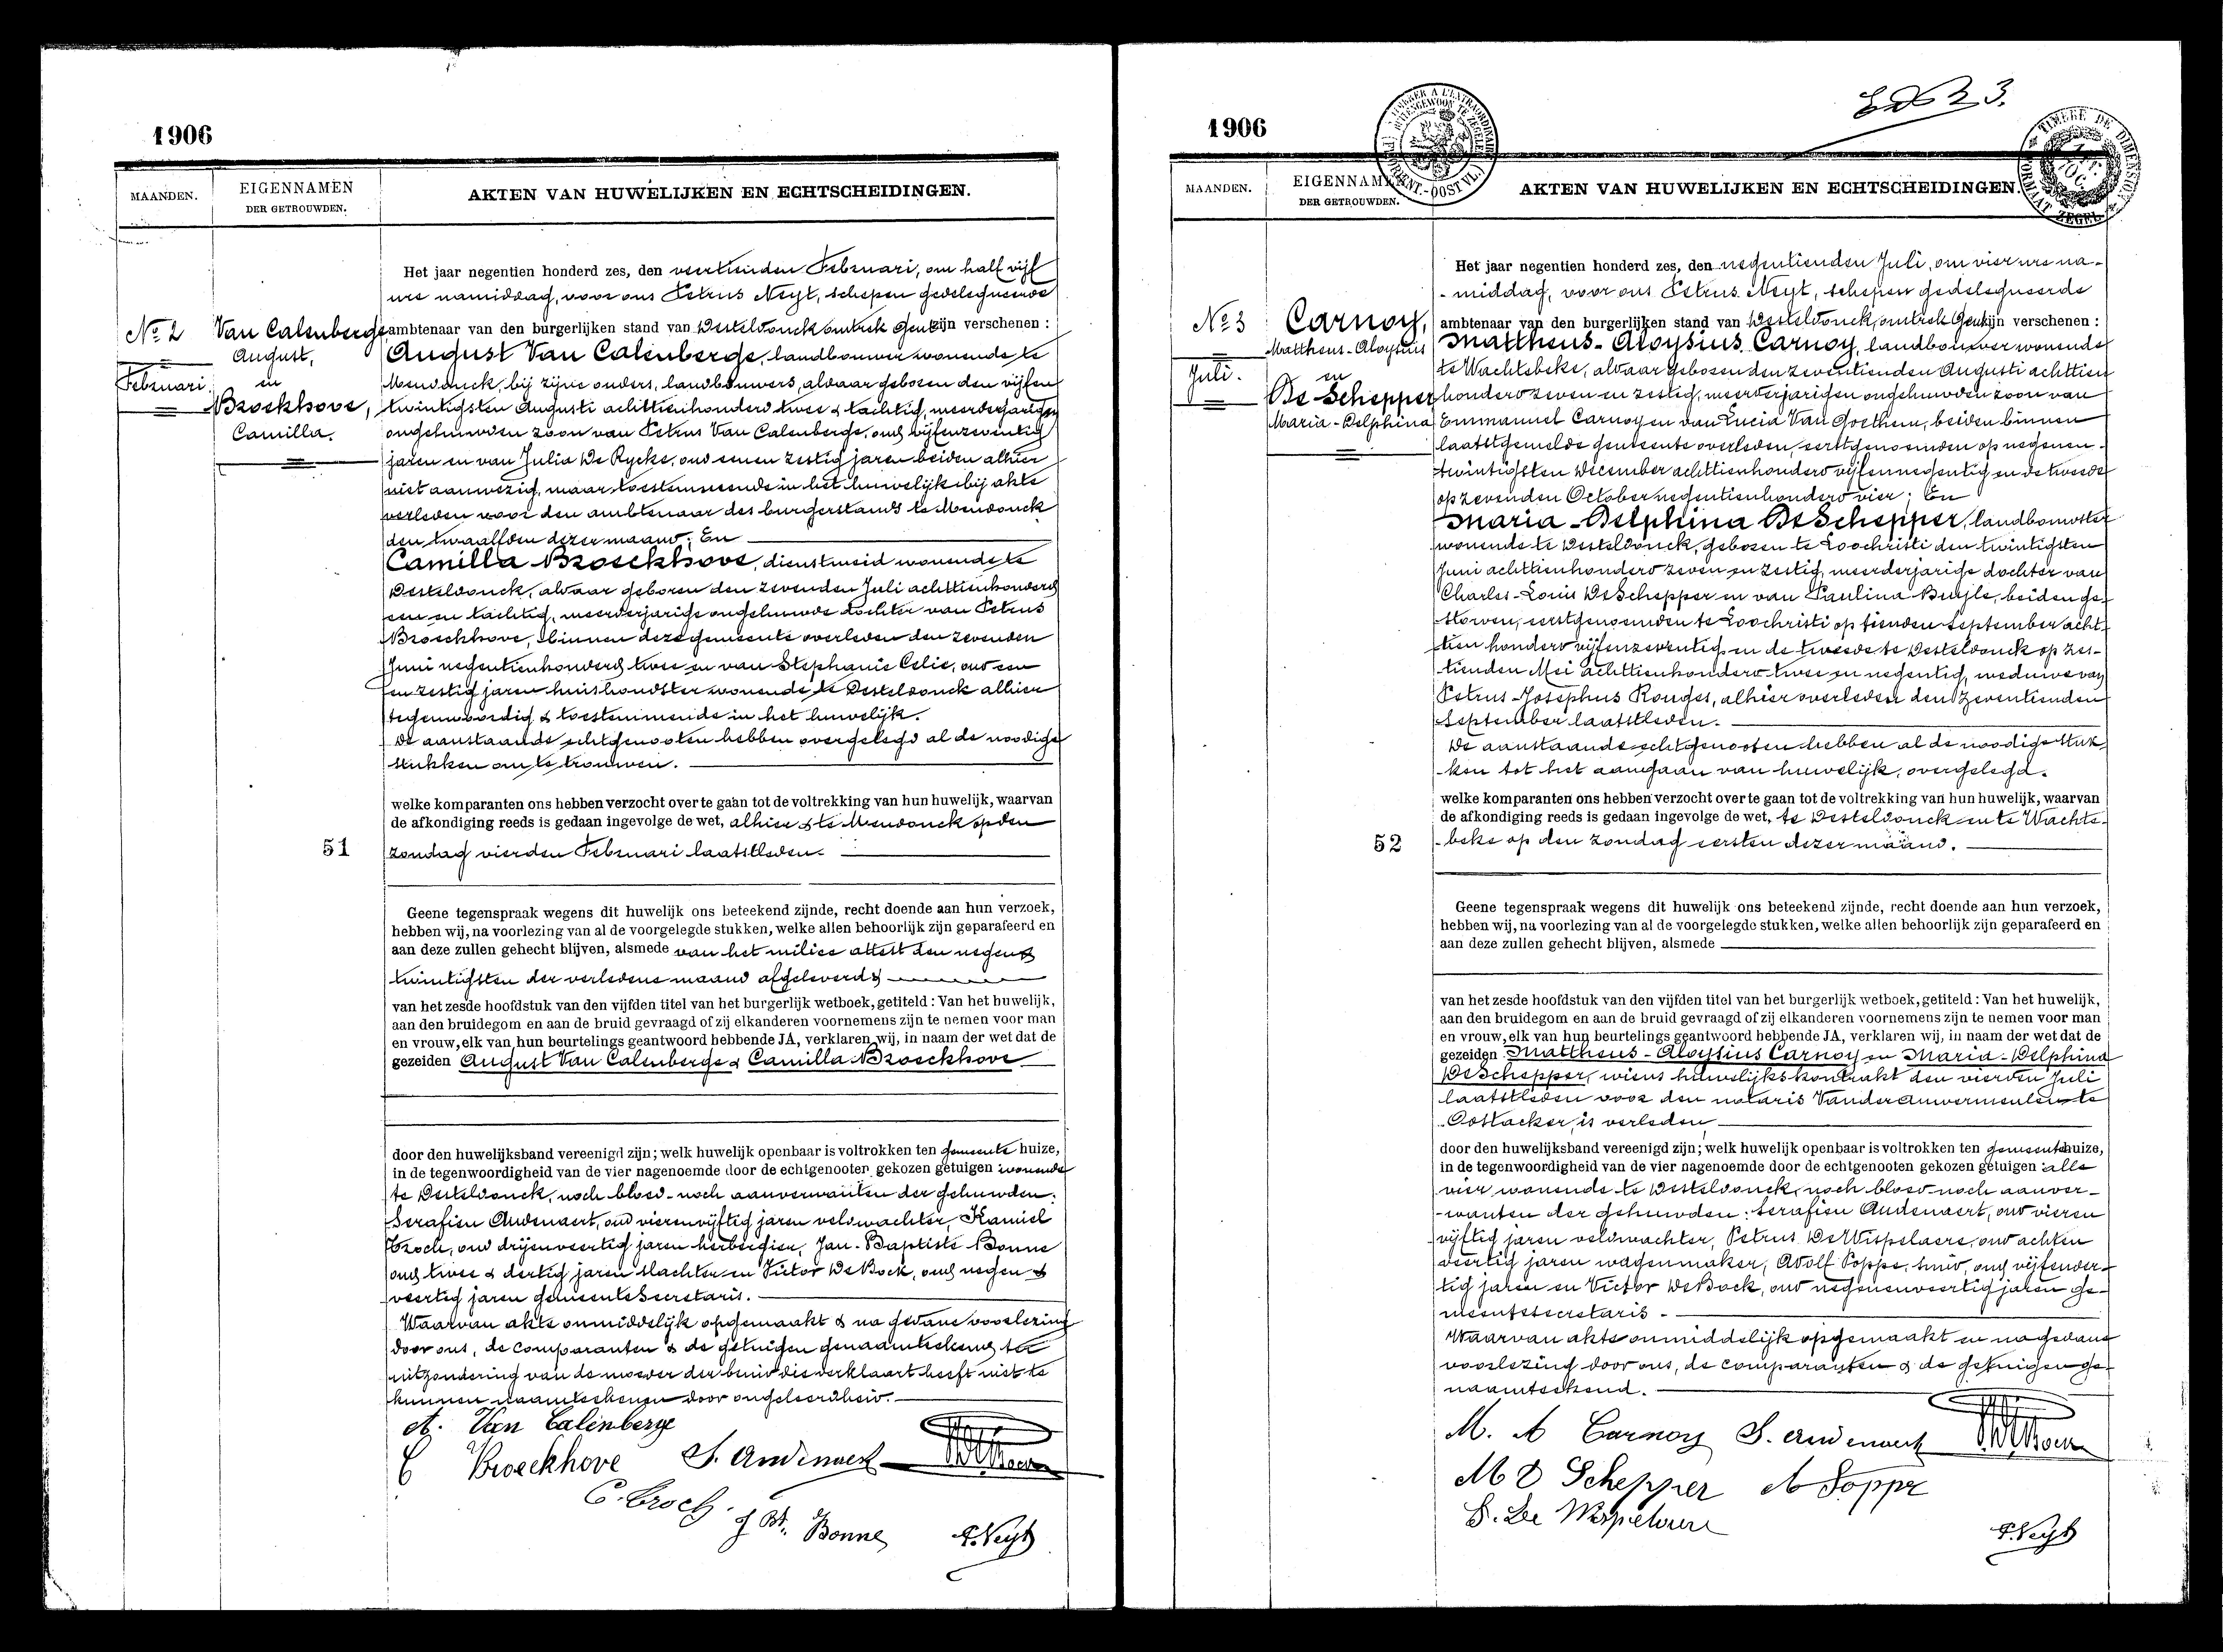 1906
MAANDEN.
EIGENNAMEN
DER GETROUWDEN.
AKTEN VAN HUWELIJKEN EN ECHTSCHEIDINGEN.
No 2
Februari
Van Calenberge
August,
en
Broeckhove,
Camilla.
Het jaar negentien honderd zes, den veertienden Februari, om half vijf
ure namiddag, voor ons Petrus Neyt, schepen gedelegueerde
ambtenaar van den burgerlijken stand van Desteldonck omtrek Gent zijn verschenen :
August Van Calenberge, landbouwer wonende te
Mendonck, bij zijne ouders, landbouwers, aldaar geboren den vijfen
twintigsten Augusti achttienhonderd twee & tachtig, meerderjarigen
ongehuwden zoon van Petrus Van Calenberge, oud vijfenzeventig
jaren en van Julia De Rycke, oud eenen zestig jaren beiden alhier
niet aanwezig, maar toestemmende in het huwelijk bij akte
verleden voor den ambtenaar des burgerstands te Mendonck
den twaalfden dezer maand; En
Camilla Broeckhove, dienstmeid wonende te
Desteldonck, aldaar geboren den zevenden Juli achttienhonderd
een en tachtig, meerderjarige ongehuwde dochter van Petrus
Broeckhove, binnen deze gemeente overleden den zevenden
Juni negentienhonderd twee en van Stephanie Celie, oud een
en zestig jaren huishoudster wonende te Desteldonck alhier
tegenwoordig & toestemmende in het huwelijk.
De aanstaande echtgenooten hebben overgelegd al de noodige
stukken om te trouwen.
welke komparanten ons hebben verzocht over te gaan tot de voltrekking van hun huwelijk, waarvan
de afkondiging reeds is gedaan ingevolge de wet, alhier & te Mendonck op den
51
zondag vierden Februari laatstleden.
Geene tegenspraak wegens dit huwelijk ons beteekend zijnde, recht doende aan hun verzoek,
hebben wij, na voorlezing van al de voorgelegde stukken, welke allen behoorlijk zijn geparafeerd en
aan deze zullen gehecht blijven, alsmede van het milicie attest den negen &
twintigsten der verledene maand afgeleverd &
van het zesde hoofdstuk van den vijfden titel van het burgerlijk wetboek, getiteld : Van het huwelijk,
aan den bruidegom en aan de bruid gevraagd of zij elkanderen voornemens zijn te nemen voor man
en vrouw, elk van hun beurtelings geantwoord hebbende JA, verklaren wij, in naam der wet dat de
gezeiden August Van Calenberge & Camilla Broeckhove
door den huwelijksband vereenigd zijn; welk huwelijk openbaar is voltrokken ten gemeente huize,
in de tegenwoordigheid van de vier nagenoemde door de echtgenooten gekozen getuigen wonende
te Desteldonck, noch bloed- noch aanverwanten der gehuwden:
Serafien Audenaert, oud vierenvijftig jaren veldwachter, Kamiel
Croch, oud drijenveertig jaren herbergier, Jan-Baptiste Bonne
oud twee & dertig jaren slachter en Victor De Bock, oud negen &
veertig jaren gemeentesecretaris.
Waarvan akte onmiddelijk opgemaakt & na gedane voorlezing
door ons, de comparanten & de getuigen genaamteekend ter
uitzondering van de moeder der bruid die verklaart heeft niet te
kunnen naamteekenen door ongeleerdheid.
A. Van Calenberge
C Broeckhove S. Audenaert
C. Croch. J Bt. Bonne P. Neyt
1906
MAANDEN.
EIGENNAMEN
DER GETROUWDEN.
AKTEN VAN HUWELIJKEN EN ECHTSCHEIDINGEN.
TIMBRE DE DIMENSION
FORMAAT ZEGEL
No 3
Juli.
Carnoy,
Mattheus-Aloysius
en
De Schepper
Maria-Delphina
Het jaar negentien honderd zes, den negentienden Juli, om vier ure na-
-middag, voor ons Petrus Neyt, schepen gedelegueerde
ambtenaar van den burgerlijken stand van Desteldonck, omtrek Gent zijn verschenen :
Mattheus-Aloysius Carnoy, landbouwer wonende
te Wachtebeke, aldaar geboren den zeventienden Augusti achttien
honderd zeven en zestig, meerderjarigen ongehuwden zoon van
Emmanuel Carnoy en van Lucia Van Goethem, beiden binnen
laatstgemelde gemeente overleden, eerstgenoemden op negenen-
twintigsten December achttienhonderd vijfennegentig en de tweede
op zevenden October negentienhonderd vier; En
Maria-Delphina De Schepper, landbouwster
wonende te Desteldonck, geboren te Loochristi den twintigsten
Juni achttienhonderd zeven en zestig, meerderjarige dochter van
Charles-Louis De Schepper en van Paulina Buyle, beiden ge-
storven, eerstgenoemden te Loochristi op tienden September acht-
tien honderd vijfenzeventig en de tweede te Desteldonck op zes-
tienden Mei achttienhonderd twee en negentig, weduwe van
Petrus-Josephus Rouges, alhier overleden den zeventienden
September laatstleden.
De aanstaande echtgenooten hebben al de noodige stuk-
ken tot het aangaan van huwelijk, overgelegd.
welke komparanten ons hebben verzocht over te gaan tot de voltrekking van hun huwelijk, waarvan
de afkondiging reeds is gedaan ingevolge de wet, te Desteldonck en te Wachte-
52
-beke op den zondag eersten dezer maand.
Geene tegenspraak wegens dit huwelijk ons beteekend zijnde, recht doende aan hun verzoek,
hebben wij, na voorlezing van al de voorgelegde stukken, welke allen behoorlijk zijn geparafeerd en
aan deze zullen gehecht blijven, alsmede
van het zesde hoofdstuk van den vijfden titel van het burgerlijk wetboek, getiteld : Van het huwelijk,
aan den bruidegom en aan de bruid gevraagd of zij elkanderen voornemens zijn te nemen voor man
en vrouw, elk van hun beurtelings geantwoord hebbende JA, verklaren wij, in naam der wet dat de
gezeiden Mattheus-Aloysius Carnoy en Maria-Delphina
De Schepper, wiens huwelijkskontrakt den vierden Juli
laatstleden voor den notaris Vander Auwermeulen te
Oostacker, is verleden
door den huwelijksband vereenigd zijn; welk huwelijk openbaar is voltrokken ten gemeentehuize,
in de tegenwoordigheid van de vier nagenoemde door de echtgenooten gekozen getuigen alle
vier wonende te Desteldonck, noch bloed- noch aanver-
-wanten der gehuwden: Serafien Audenaert, oud vieren
vijftig jaren veldwachter, Petrus De Wispelaere, oud achten
veertig jaren wagenmaker, Adolf Poppe, smid, oud vijfender-
tig jaren en Victor De Bock, oud negenenveertig jaren ge-
meentesecretaris -
Waarvan akte onmiddelijk opgemaakt en na gedane
voorlezing door ons, de comparanten & de getuigen ge-
naamteekend.
M. A Carnoy S. Audenaert
M D Schepper A Poppe
P. De Wispelaere
P. Neyt